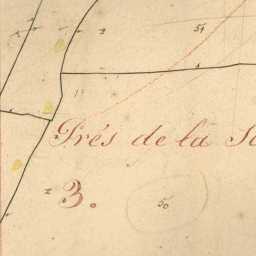 51
Prés de la
3.
50